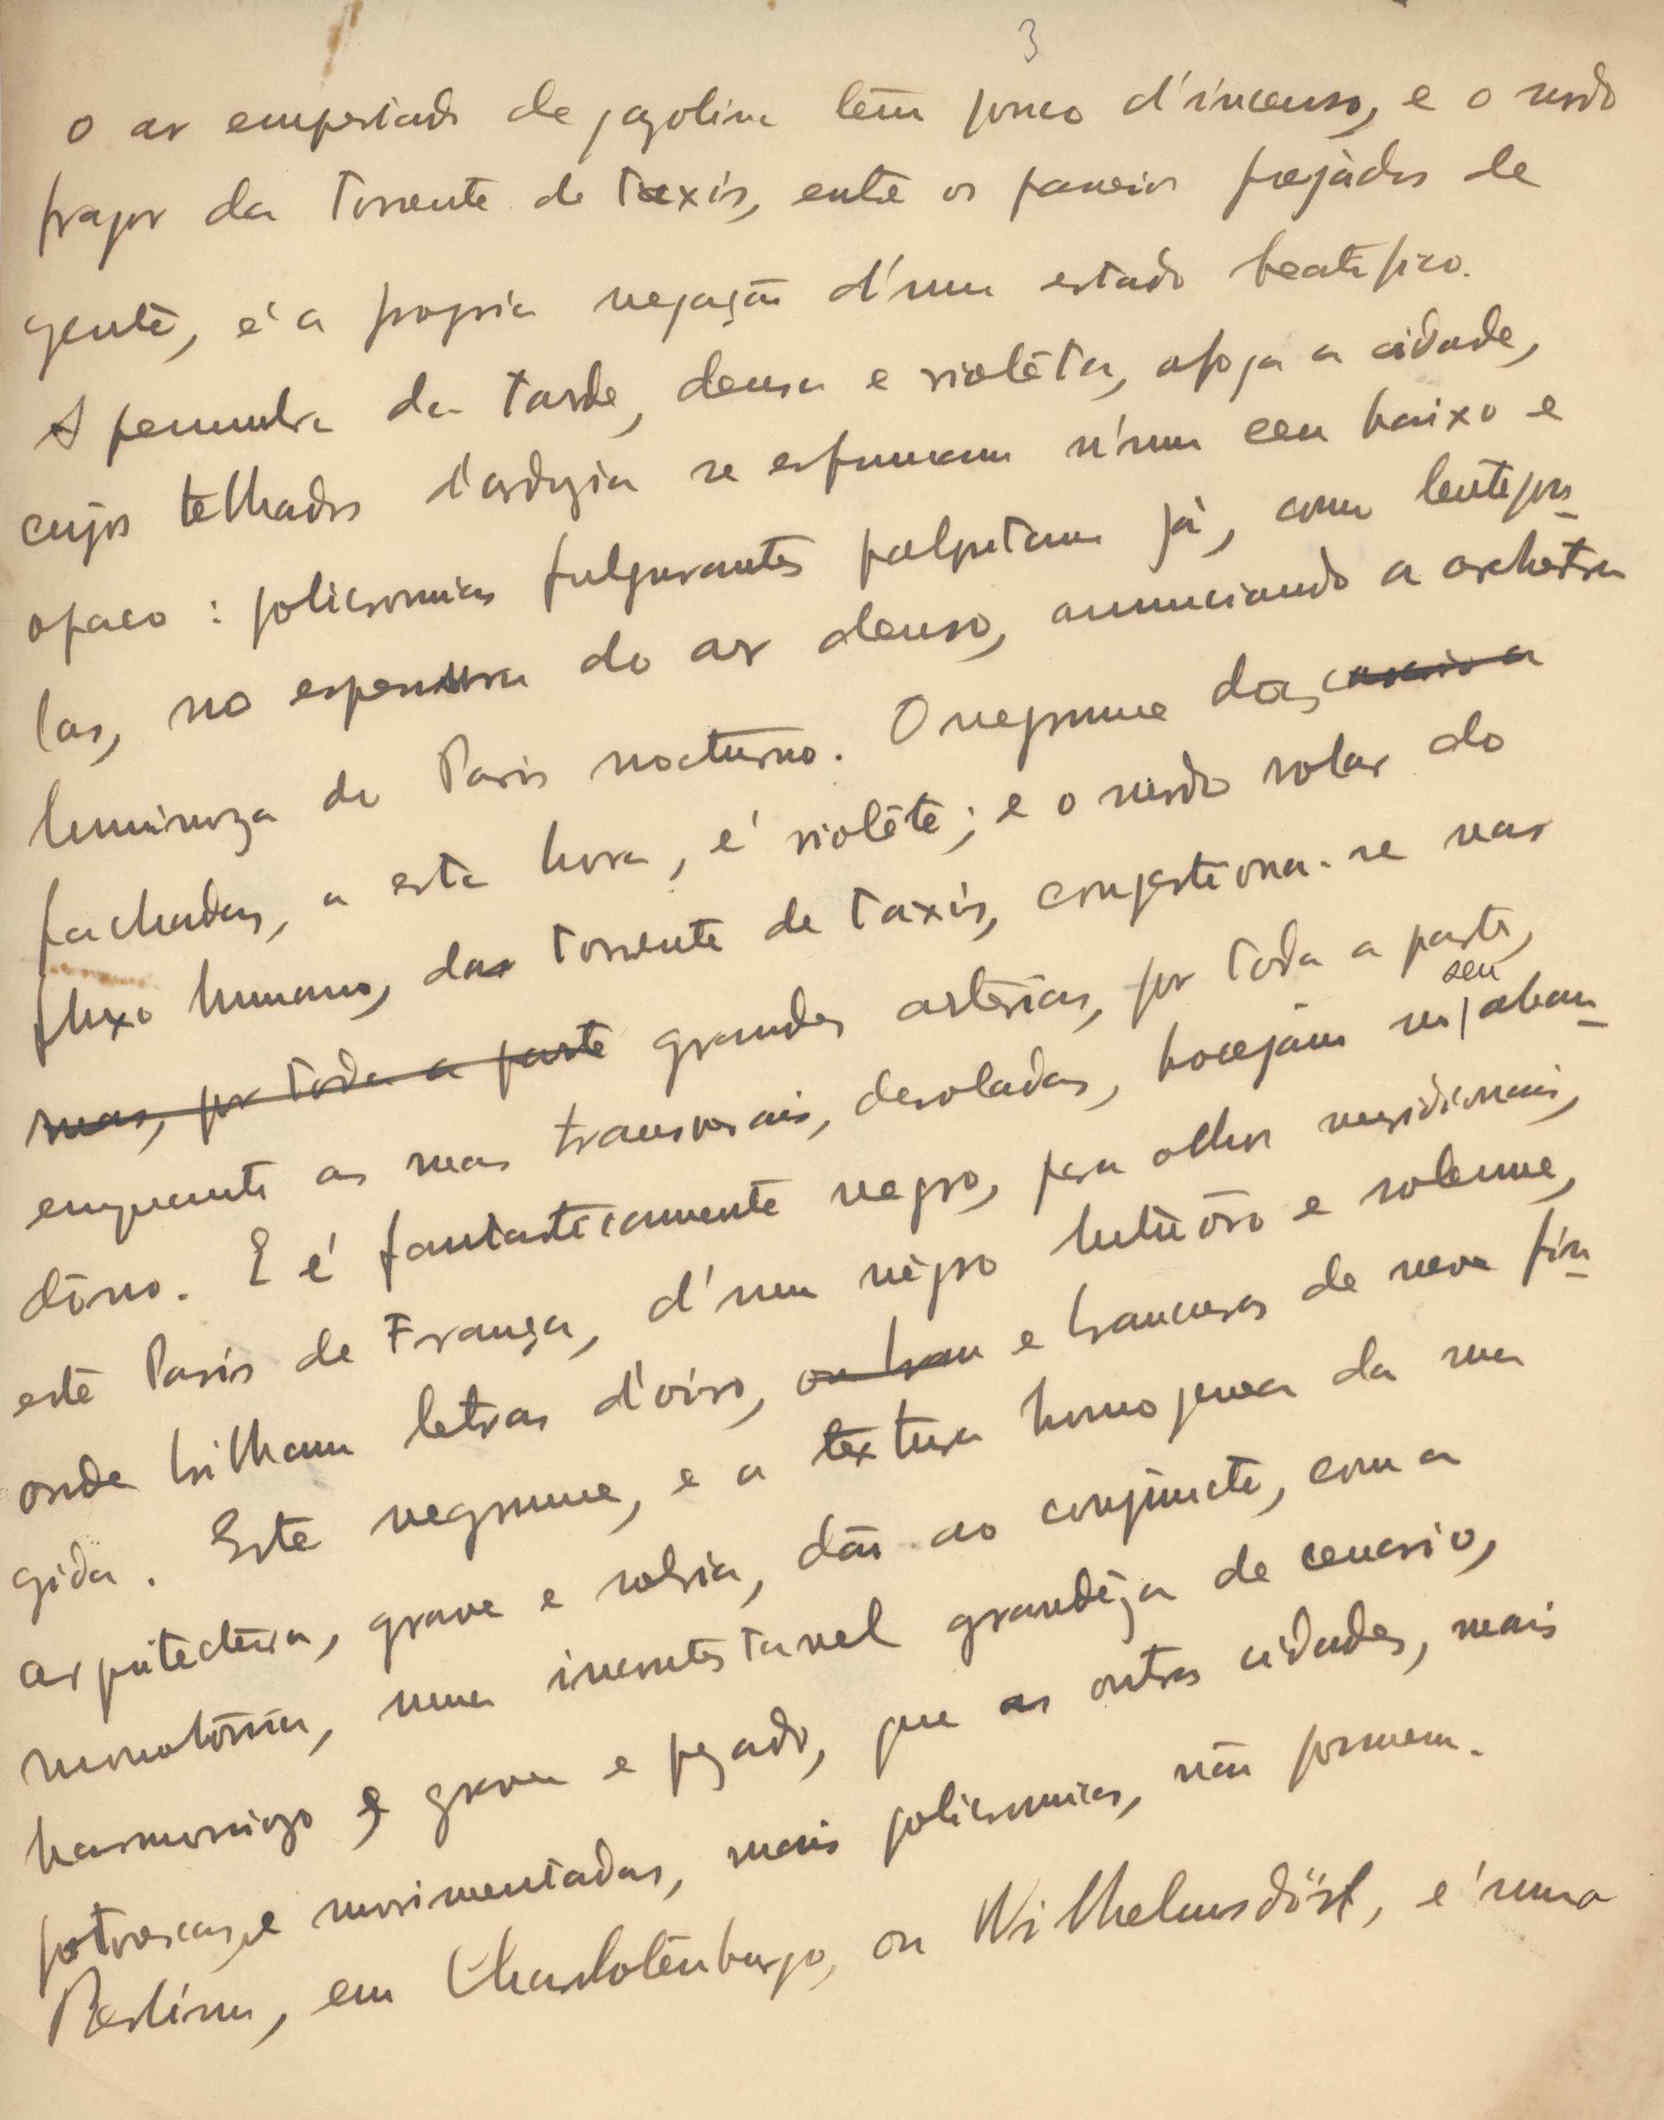 3
o ar empestado de gazolina tem pouco d'incenso, e o surdo
fragor da torrente de taxis, entre os passeios pejados de
gente, é a propria negação d'um estado beatifico.
A penumbra da tarde, densa e violêta, afoga a cidade,
cujos telhados d'ardozia se esfumam n'um ceu baixo e
opaco: policromias fulgurantes palpitam já, com lentejou
las, no espessura do ar denso, anunciando a orchestra
luminoza do Paris nocturno. O negrume das
fachadas, a esta hora, é violête; e o surdo rolar do
fluxo humano, da torrente de taxis, congestiona-se nas
ruas, por toda a parte grandes artérias, por toda a parte,
seu
emquanto as ruas transversais, desoladas, bocejam no aban
dôno. E é fantasticamente negro, para olhos meridionais,
este Paris de França, d'um nêgro lutuôso e solemne,
onde brilham letras d'oiro, ou bran e brancuras de neve fin
gida. Este negrume, e a textura homogenea da sua
arquitectura, grave e sobria, dão ao conjuncto, com a
monotonia, uma incontestavel grandêza de cenario,
harmoniozo e grave e pezado, que as outras cidades, mais
pitorescas e movimentadas, mais policromicas, não possuem.
Berlim, em Charlotenburgo, ou Wilhelmsdörf, é uma